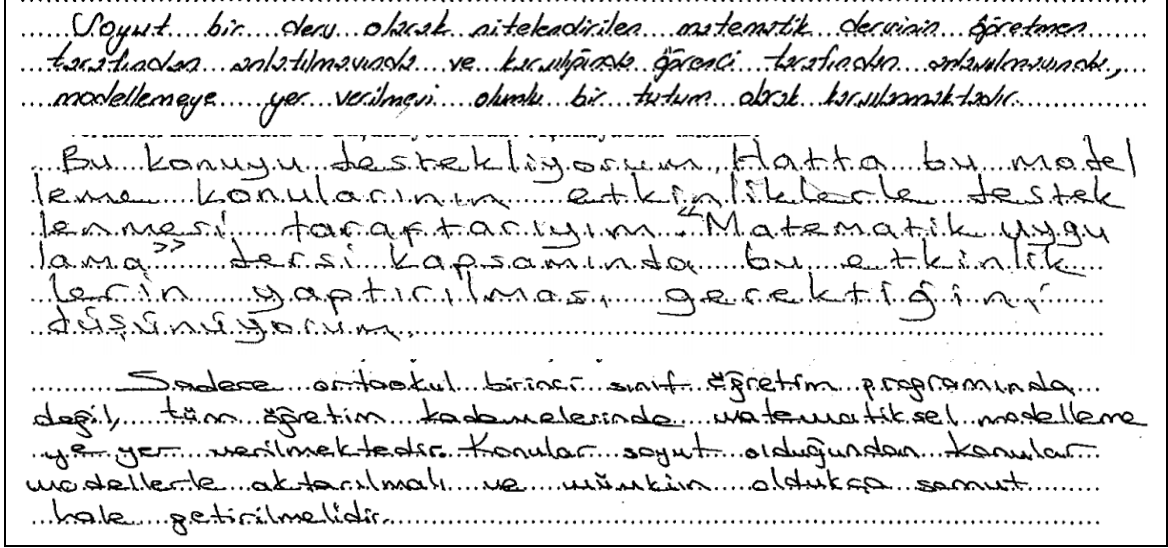 Soyut bir ders olarak nitelendirilen matematik dersinin öğretmen
tarafından anlatılmasında ve karşılığında öğrenci tarafından anlaşılmasında,
modellemeye yer verilmesi olumlu bir tutum olarak karşılanmaktadır.
Bu konuyu destekliyorum. Hatta bu model
leme konularının etkinliklerle destek
lenmesi taraftarıyım. "Matematik uygu
lama" dersi kapsamında bu etkinlik
lerin yaptırılması gerektiğini
düşünüyorum.
Sadece ortaokul birinci sınıf öğretim programında
değil, tüm öğretim kademelerinde matematiksel modelleme
ye yer verilmektedir. Konular soyut olduğundan konular
modellerle aktarılmalı ve mümkün oldukça somut
hale getirilmelidir.